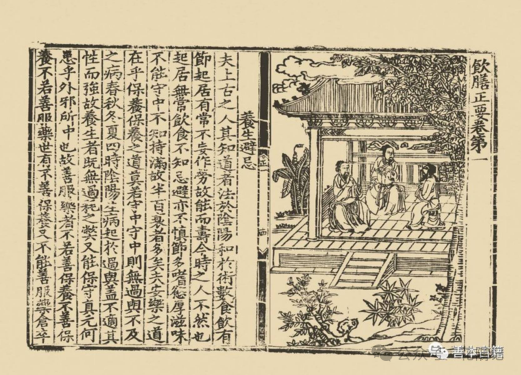 飲膳正要卷第一
養生避忌
夫上古之人其知道者法於陰陽和於術數食飲有
節起居有常不妄作勞故能而壽今時之人不然也
起居無常飲食不知忌避亦不慎節多嗜慾厚滋味
不能守中不知持滿故半百衰者多矣夫安樂之道
在乎保養保養之道莫若守中守中則無過與不及
之病春秋冬夏四時陰陽生病起於過與蓋不適其
性而強故養生者既無過耗之弊又能保守真元何
患乎外邪所中也故善服藥者不若善保養不善保
養不若善服藥世有不善保養又不能善服藥倉卒